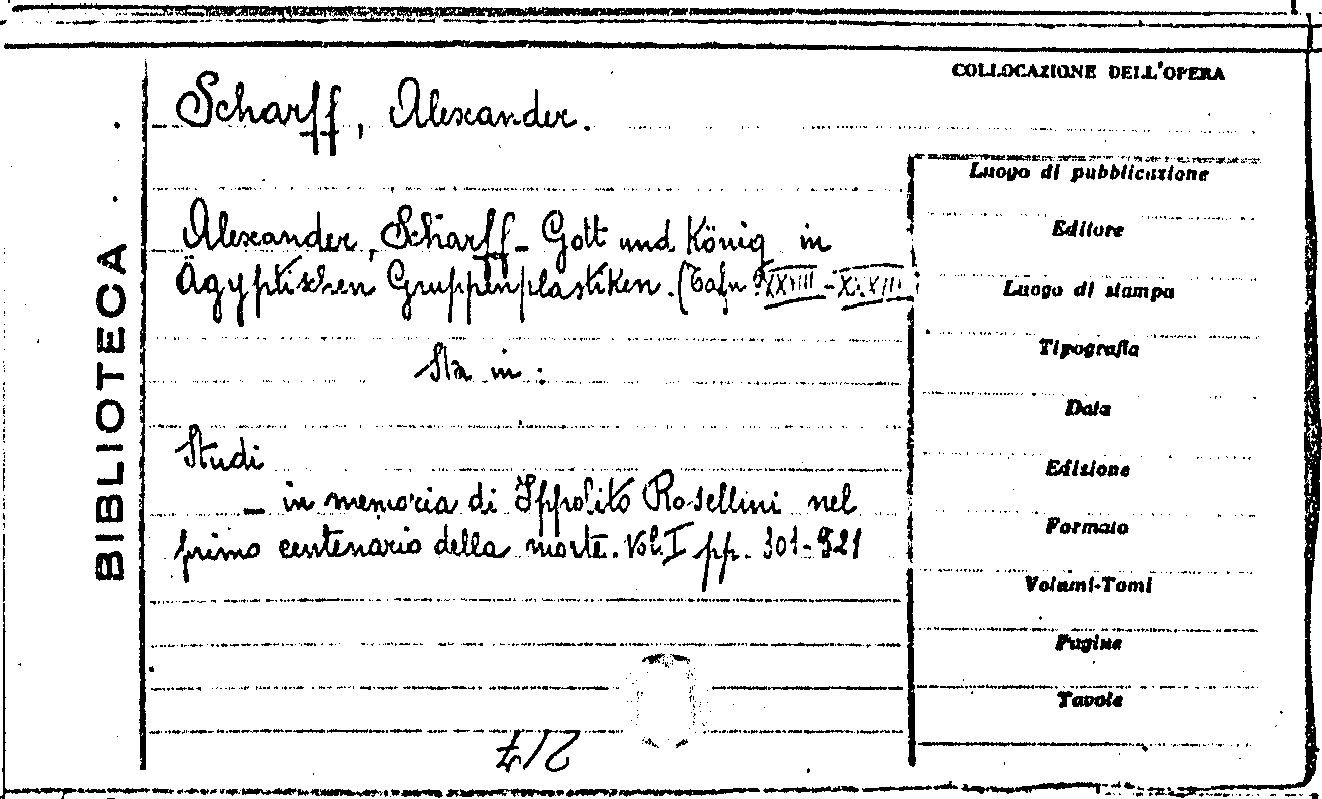 COLLOCAZIONE DELL'OPERA
Scharff, Alexander.
Alexander, Scharff - Gott und König in
Ägyptischen Gruppenplastiken. (Tafn XXVIII - XXXIII
Sta in:
Studi
- in memoria di Ippolito Rosellini nel
primo centenario della morte. Vol. I pp. 301-321
BIBLIOTECA
Luogo di pubblicazione
Editore
Luogo di stampa
Tipografia
Data
Edizione
Formato
Volumi-Tomi
Pagine
Tavole